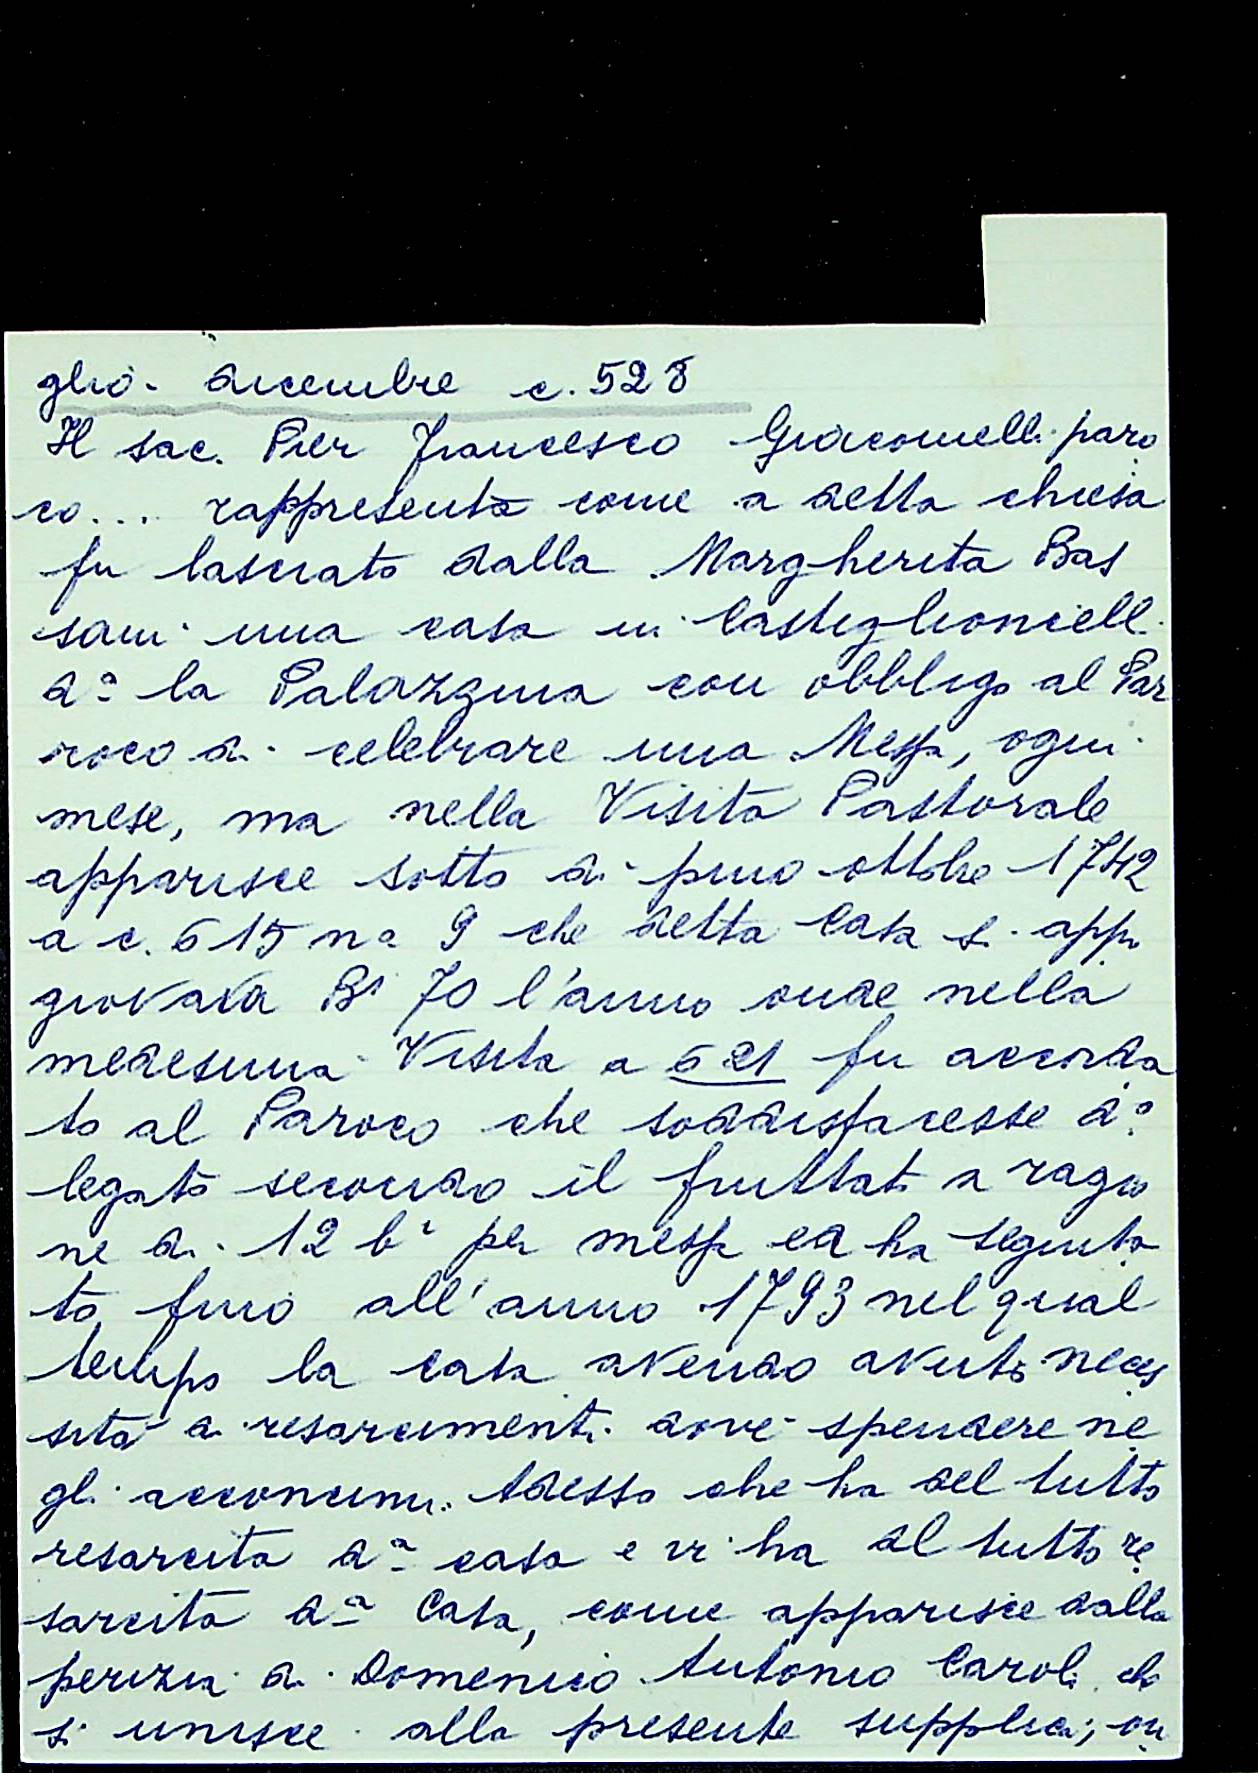 glio - dicembre c. 528
Il sac. Pier Francesco Giacomelli paro
co... rappresenta come a detta chiesa
fu lasciato dalla Margherita Bas
sani una casa in Castiglioncelli
da la Palazzina con obbligo al Par
roco di celebrare una Messa, ogni
mese, ma nella Visita Pastorale
apparisce sotto di primo ottobre 1742
a c. 615 no 9 che detta Casa si appi
gionava Bi 70 l'anno onde nella
medesima Visita a 621 fu accorda
to al Paroco che soddisfacesse do
legato secondo il fruttato a ragio
ne di 12 bi per messa ed ha seguita
to fino all'anno 1793 nel qual
tempo la casa avendo avuto neces
sità di resarcimenti dovè spendere ne
gli acconcimi. Adesso che ha del tutto
resarcita da casa e vi ha al tutto re
sarcita da Casa, come apparisce dalla
perizia di Domenico Antonio Caroli che
si unisce alla presente supplica; on